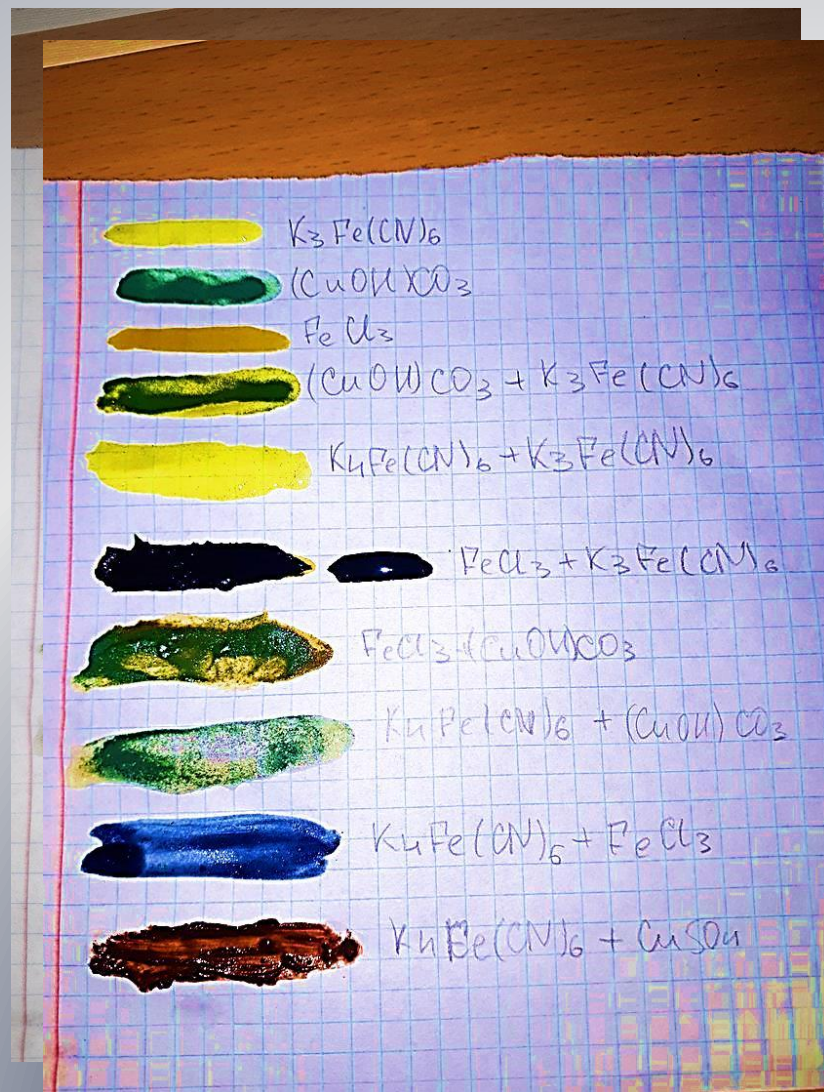 K3Fe(CN)6
(CuOH)CO3
FeCl3
(CuOH)CO3 + K3Fe(CN)6
K4Fe(CN)6 + K3Fe(CN)6
FeCl3 + K3Fe(CN)6
FeCl3 + (CuOH)CO3
K4Fe(CN)6 + (CuOH)CO3
K4Fe(CN)6 + FeCl3
K4Fe(CN)6 + CuSO4